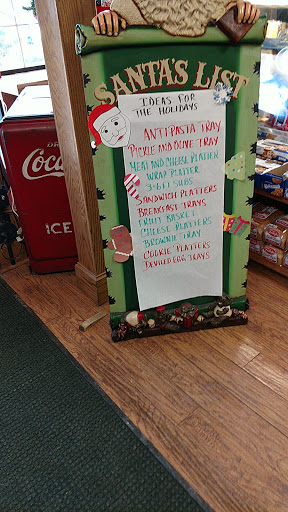 SANTA'S LIST
IDEAS FOR
THE HOLIDAYS
ANTIPASTA TRAY
PICKLE AND OLIVE TRAY
MEAT AND CHEESE PLATTER
WRAP PLATTER
3-6 FT SUBS
SANDWICH PLATTERS
BREAKFAST TRAYS
FRUIT BASKET
CHEESE PLATTERS
BROWNIE TRAY
COOKIE PLATTERS
DEVILED EGG TRAYS
Coca
ICE